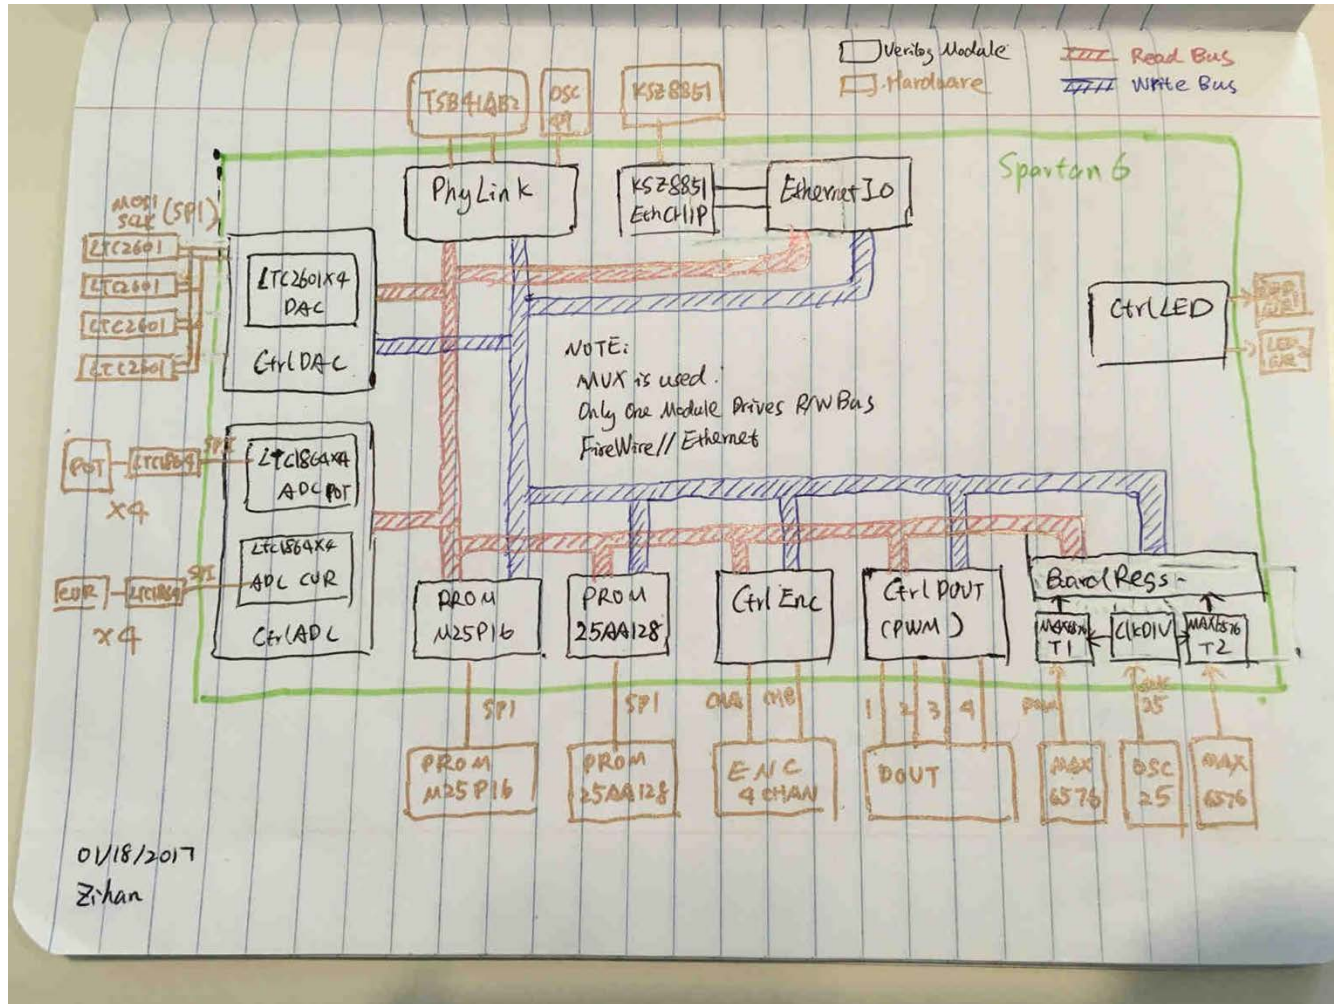 Verilog Module
Hardware
Read Bus
Write Bus
TSB41AB2
OSC
49
KSZ8851
Spartan 6
PhyLink
KSZ8851
EthCHIP
EthernetIO
MOSI
SCLK (SPI)
LTC2601
LTC2601
LTC2601
LTC2601
LTC2601x4
DAC
CtrlDAC
CtrlLED
LED
NOTE:
MUX is used.
Only One Module Drives R/W Bus
FireWire // Ethernet
POT
LTC1864
SPI
x4
LTC1864x4
ADC POT
CUR
LTC1864
SPI
x4
LTC1864x4
ADC CUR
CtrlADC
PROM
M25P16
PROM
25AA128
Ctrl Enc
Ctrl DOUT
(PWM)
BoardRegs
MAX6576
T1
ClkDIV
MAX6576
T2
SPI
SPI
CHA
CHB
1
2
3
4
25
PROM
M25P16
PROM
25AA128
ENC
4 CHAN
DOUT
MAX
6576
OSC
25
MAX
6576
01/18/2017
Zihan